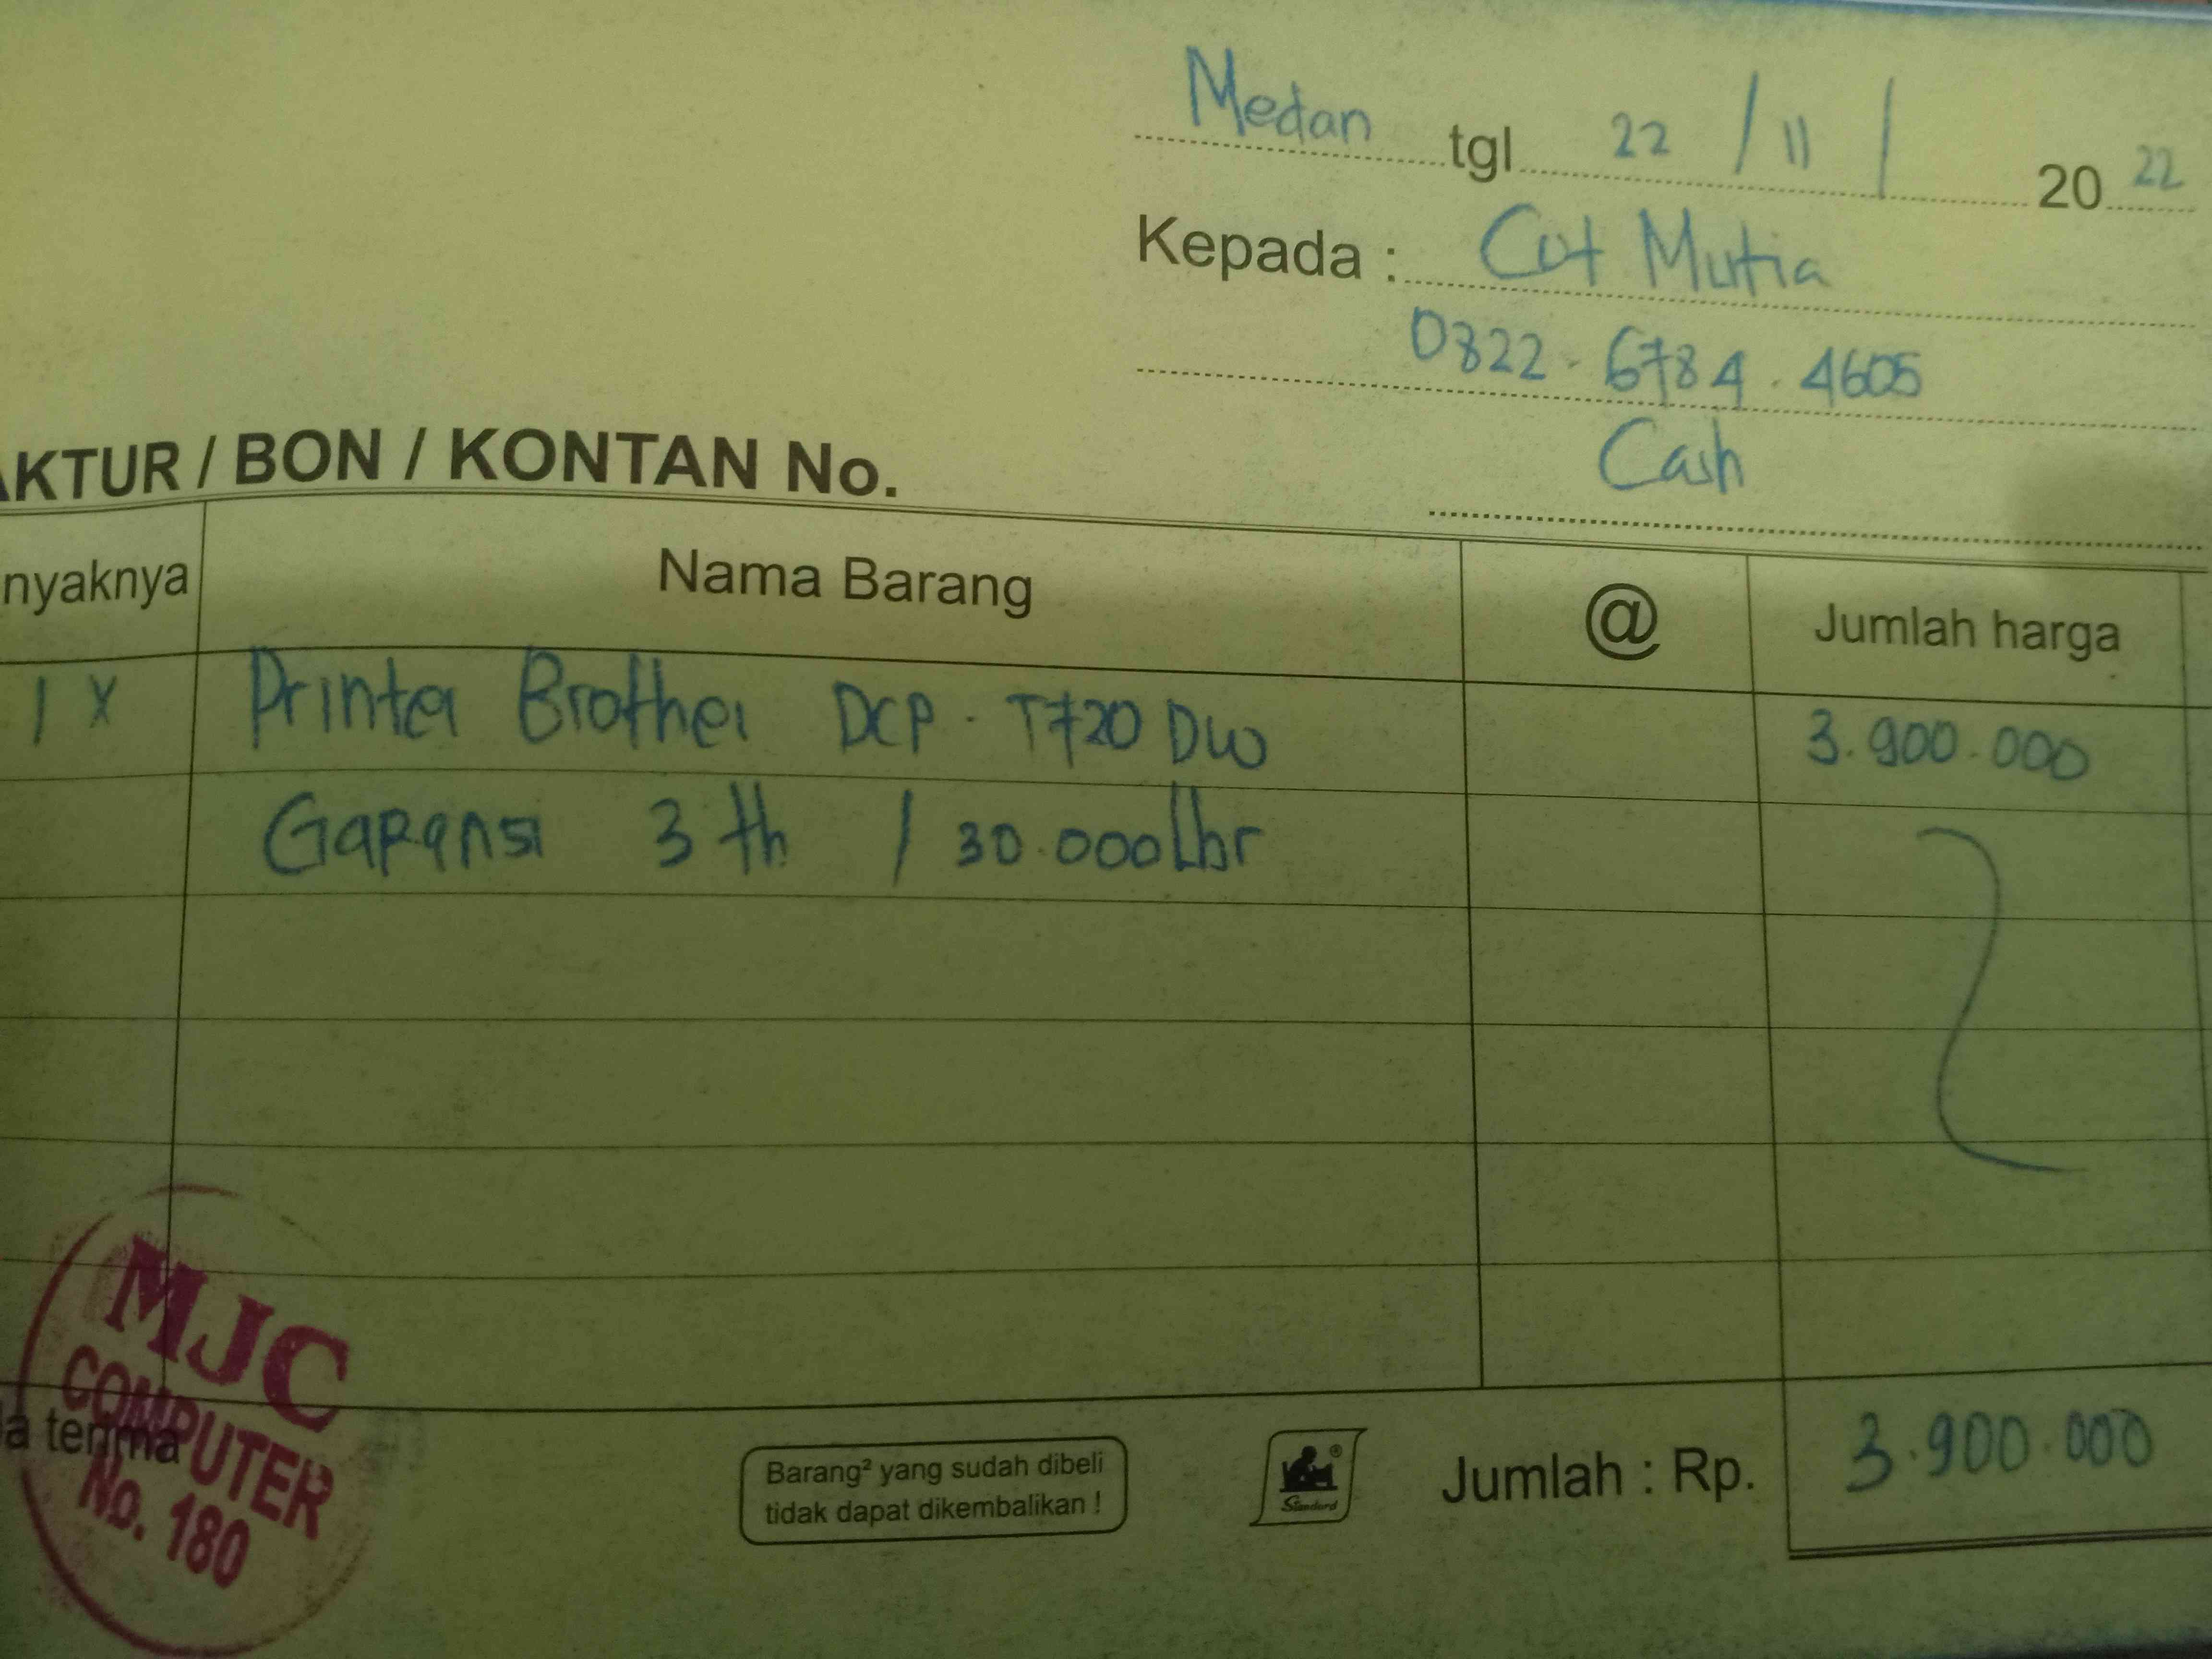 Medan tgl 22 / 11 / 20 22
Kepada : Cut Mutia
0822 - 6784 . 4605
Cash
AKTUR / BON / KONTAN No.
nyaknya Nama Barang @ Jumlah harga
1 X Printer Brother DCP - T720 DW 3.900.000
Garansi 3 th / 30.000 Lbr
MJC
COMPUTER
No. 180
da terima
Barang² yang sudah dibeli
tidak dapat dikembalikan !
Standard
Jumlah : Rp. 3.900.000